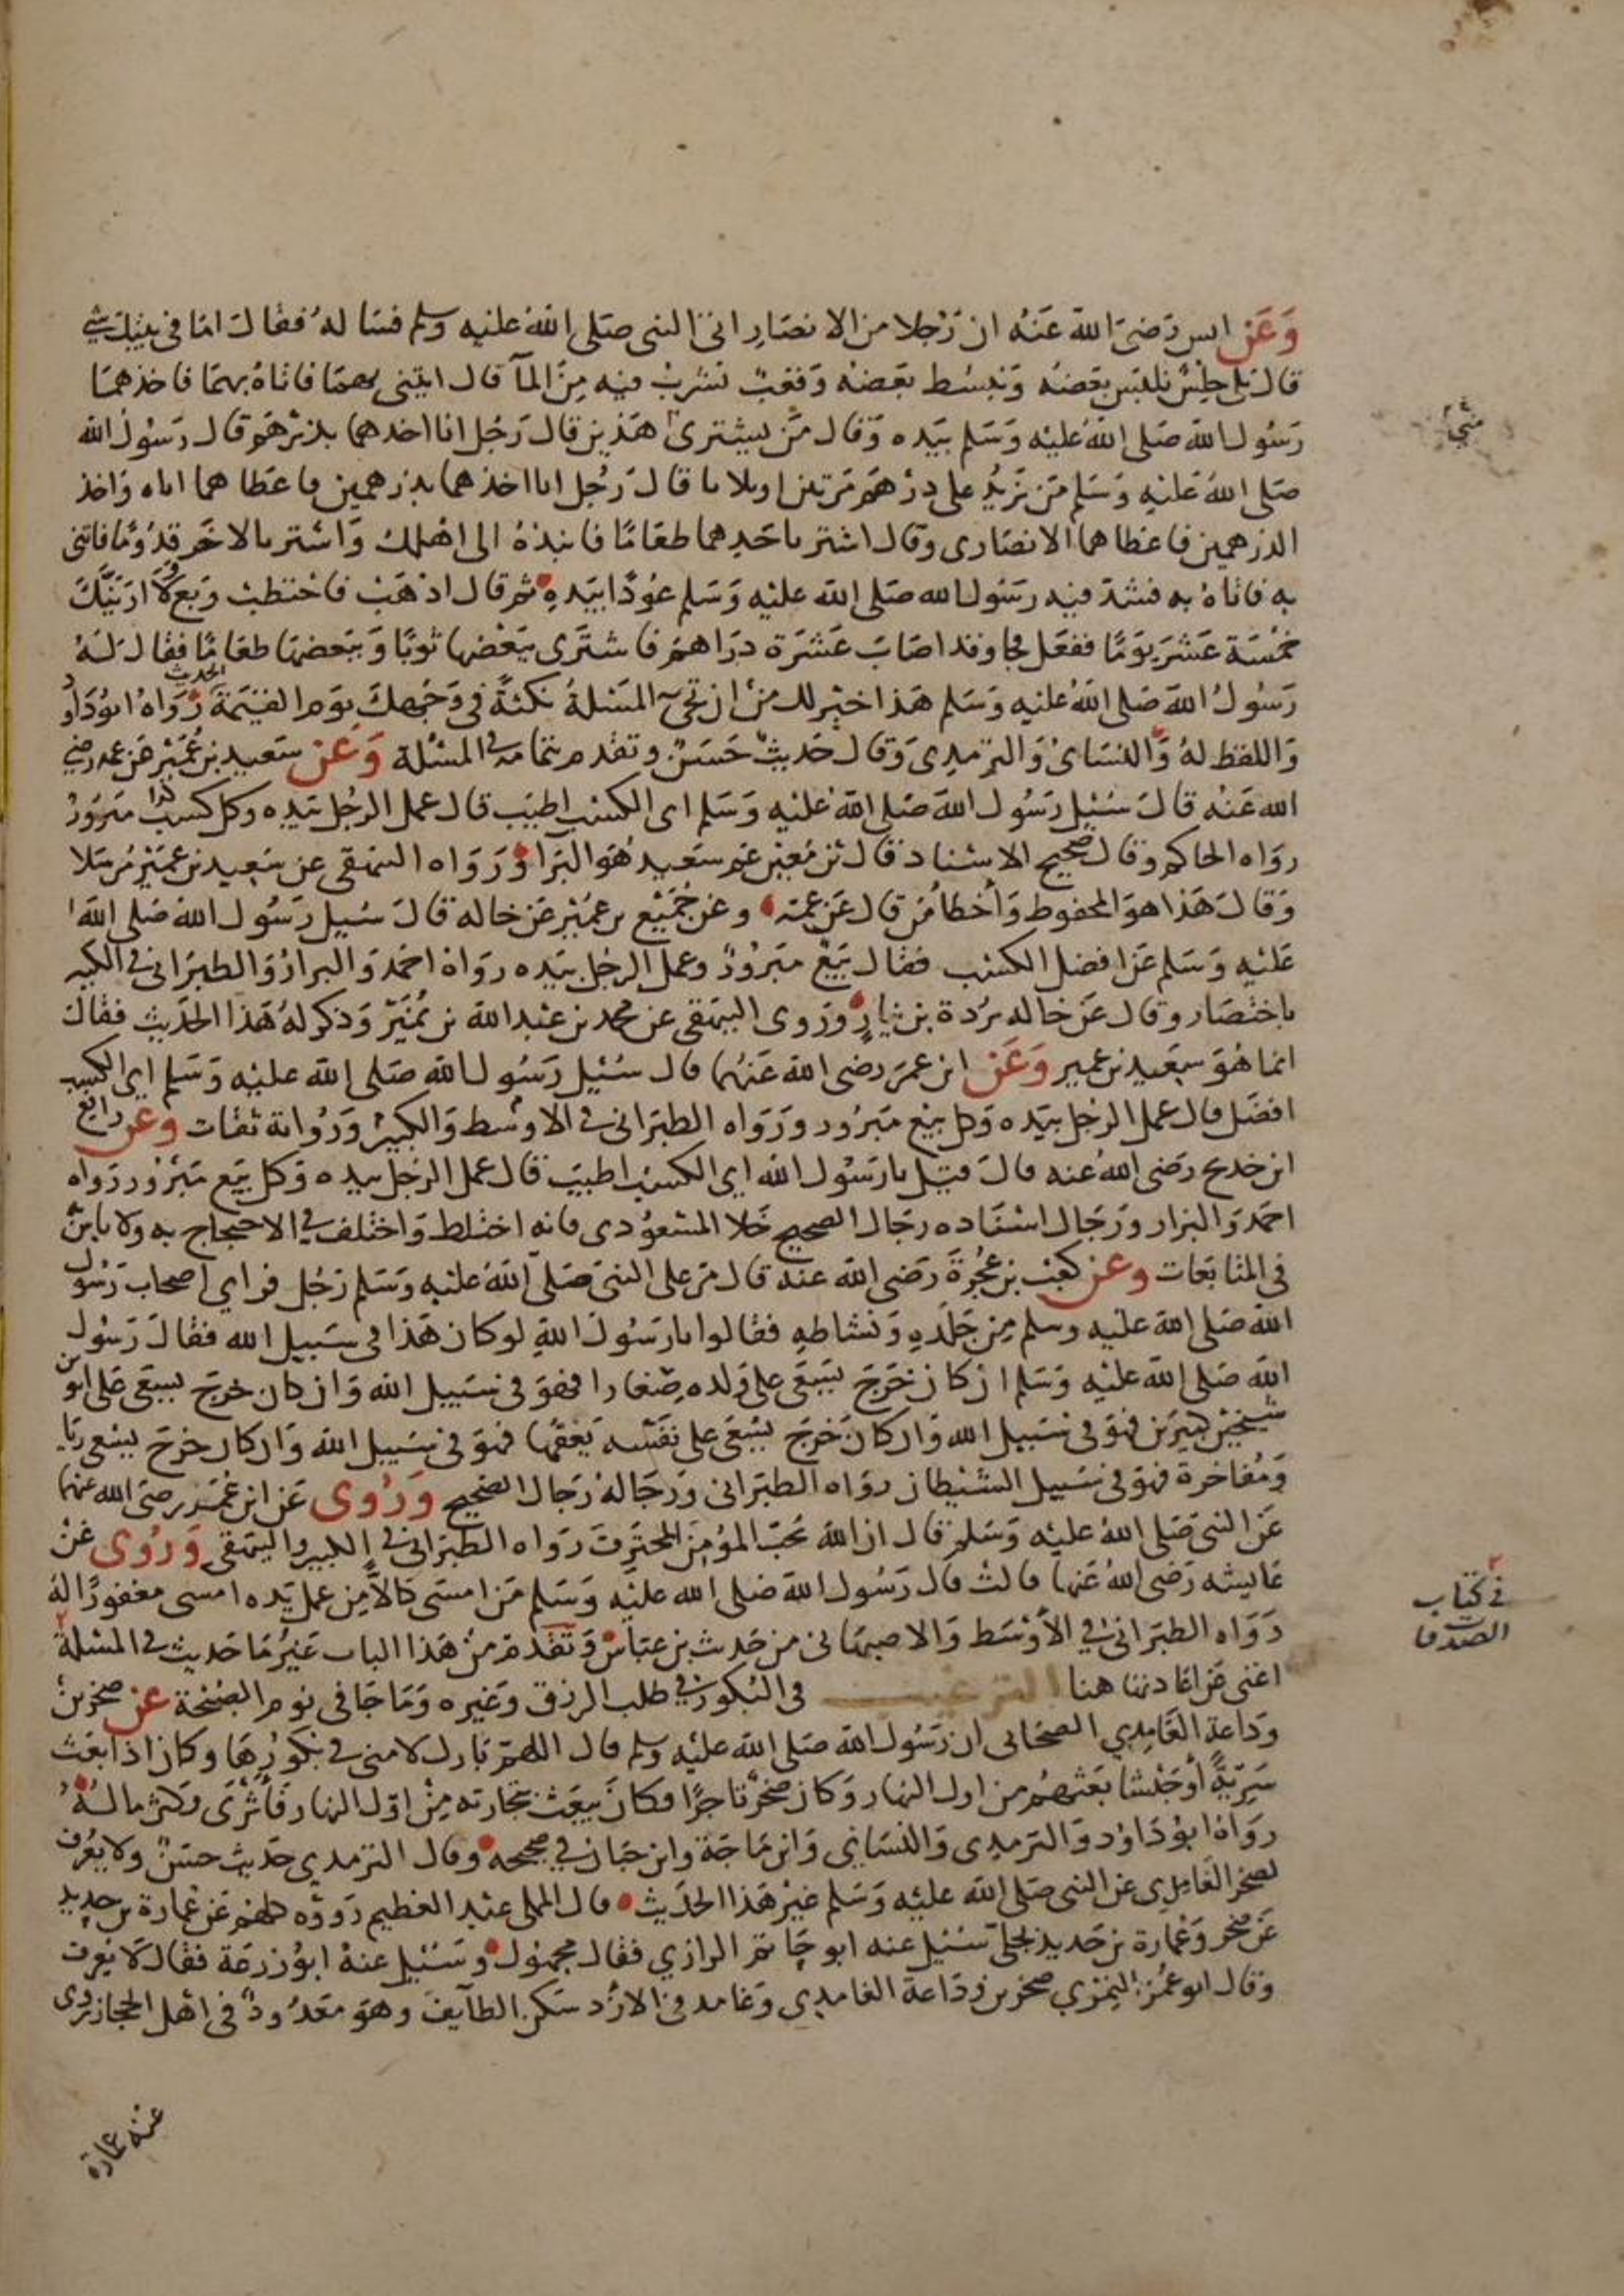 وَعَن انس رَضىَ اللهَ عَنْهُ ان رَجلا من الانصَارِ اتى النبى صَلى اللهُ علَيه وسلم فسَالهُ فقَالَ امَا فى بيتك شى
قالَ بلى حِلسٌ نلبَس بَعضهُ وَنبسُط بَعضهُ وَقعبٌ نشرَبُ فيه مِنَ المآ قال ائتنى بهمَا فاتاهُ بهمَا فاخذهمَا
رَسُول الله صَلى اللهُ علَيه وَسَلم بيَده وَقال مَن يشترى هَذين قال رَجُل انا اخذهما بدرهَم قال رَسُول الله
منى
صَلى اللهُ عَليه وَسَلم مَن يَزيُد على درْهَم مَرتين او ثلاثا قالَ رَجُل انا اخذهما بدرهمين فاعَطاهما اياه وَاخذ
الدرهمين فاعَطاهما الانصَارى وقال اشتر باحَدِهما طعَامًا فانبذهُ الى اهْلك وَاشتر بالاخَر قدُومًا فاتنى
به فاتاهُ به فشدَ فيه رَسُول الله صَلى الله علَيه وَسَلم عُودًا بيَدهِ ثم قال اذهَبْ فاحتطبْ وَبعْ وَلا ارَيَنَّكَ
خمسَة عَشرَ يومًا ففعَل فجا وقد اصَابَ عَشرَة درَاهمَ فاشترَى بَبعْضهَا ثوبًا وَببَعضهَا طعَامًا فقالَ لهُ
رَسُولُ اللهَ صَلى اللهُ علَيه وَسَلم هَذا خيْر لك منْ ان تجىَ المسَئلةُ نكتةً فى وَجْهكَ يَوم القيَمَة الحديث رَوَاهُ ابوُدَاود
وَاللفظ لهُ وَالنسَائى وَالترمِدِى وَقالَ حَديثٌ حَسَنٌ وتقدم بتمامه فى المسْئلة وَعَن سَعيد بن عُمَيْر عَن عمه رضى
الله عَنْه قالَ سُئيل رَسُول اللهَ صَلى اللهُ علَيه وَسَلم اى الكسب اطيَب قال عمل الرجُل بيَده وكل كسب مَبرورُ
روَاه الحاكم وقال صحيح الاسْناد قال بن مَعين عم سَعيد هُوَ البَرآ وَرَوَاه البيهقى عن سَعِيد بن عمَيْر مُرسَلا
وَقالَ هَذا هوَ المحفوط وَاخطا مَن قال عَن عمه وعن جُمَيْع بن عمُيْر عَن خاله قالَ سُيل رَسُول الله صَلى الله
عَلَيه وَسَلم عَن افضل الكسْب فقال بَيعٌ مَبرُورٌ وعمل الرجل بيَده روَاهُ احمَد وَالبزار وَالطبَرَانى فى الكبير
باختصَار وقال عَن خاله بُردة بن نيارٍ وَرَوى البيهَقى عن محمد بن عَبد الله بن نمُيَرْ وَذكر لهُ هَذا الحَديث فقالَ
انما هُوَ سَعيد بن عمير وَعَن ابن عمَر رضى اللهَ عَنهُما قال سُئيل رَسُول الله صَلى الله علَيه وَسَلم اى الكسب
افضَل قال عمل الرجل بيَده وَكل بيعْ مَبرُور وَرَوَاه الطبَرانى فى الاوسْط وَالكبيْر وَرُواته ثقات وعن رافع
ابن خديج رضى اللهُ عنه قالَ قيَل يا رَسُول الله اى الكسْب اطيَب قال عمل الرجل بيده وَكل بيَع مَبرْور رَوَاه
احمَد وَالبزار وَرَجَال اسْنَاده رجَال الصحيح خَلا المسْعوُدى فانه اختلط وَاختلف فى الاحتجاج به ولا باس
فى المتَابَعَات وعن كعْب بن عُجْرةَ رَضى الله عنه قال مَرّ على النبىّ صَلى اللهُ علَيه وَسَلم رَجُل فراى اصحاب رَسُول
اللهَ صَلى اللهَ علَيه وسلم مِن جَلَدِهِ وَنشاطهِ فقالوا يا رَسُولَ اللهِ لوكان هَذا فى سَبيل الله فقالَ رَسُول
اللهَ صَلى اللهَ علَيْه وَسَلم ان كان خَرَجَ يَسَعَى على وَلده صِغارا فهوَ فى سَبيل الله وَان كان خرجَ يسعَى عَلى ابوين
شيخيْن كبيرَين فهوَ فى سَبيل الله وَان كانَ خَرَجَ يسْعَى على نفَسْه يَعفهّا فهوَ فى سَبيل الله وَان كان خرَجَ يسعى ريَا
وَمُفاخرة فهوَ فى سَبيل الشيْطان روَاه الطبَرانى وَرجَالهُ رَجَال الصَحيح وَرُوى عَن ابن عُمَر رضى الله عنهما
عَن النبىّ صَلى اللهُ علَيه وَسَلم قال ان اللهَ يحُبّ المؤمِن المحترَف رَوَاه الطبَرَانى فى الكبير وَالبيهَقى وَرُوى عَنْ
عَايشه رَضى اللهُ عَنها قالتْ قال رَسُول الله صَلى الله علَيْه وَسَلم مَن امسَى كالاّ مِن عمل يَده امسى مغفورًا لهُ
رَوَاه الطبَرَانى فى الأوْسَط وَالاصبهَانى من حَديث بن عبَاسْ وَتقَدَم منْ هَذا الباب غَيرُ مَا حَديث فى المسْئلة
فى كتاب
الصدقات
اغنى عَن اعَادتها هنا الترغيب فى البُكور فى طلب الرزق وغَيره وَمَا جَا فى نوم الصُبْحَة عَن صخر بنُ
وَداعَة الغَامِدِي الصحَابى ان رَسُول اللهَ صَلى اللهَ علَيه وسلم قال اللهمّ بَارك لامتى فى بكورُهَا وكان اذا بَعَث
سَرِيّةً أوْ جَيْشا بعَثهُمْ من اول النهار وَكان صَخرٌ تاجرًا فكانَ يَبَعثْ تجَارته مِنْ اوّل النهار فَأثْرَى وَكثر مالهُ
روَاهُ ابوُ دَاوُد وَالترمِدِى وَالنسَائى وَابن مَاجَة وابن حَبان فى صحِيحه وقال الترمدي حَدِيث حسَنٌ ولا يعُرَف
لصخر الغَامِدِى عَن النبى صَلى الله علَيْه وَسَلم غيرْ هَذا الحَديث قال المملى عبْد العَظيم رَووْه كلهم عَن عُمارة بن حَدِيد
عَن صَخر وَعُمارة بن حَديد بجلى سُئيل عنه ابو حَاتم الرازي فقال مجهوُل وَسُئيل عنهُ ابوُ زرعَة فقال لا يعَرف
وَقال ابو عمُر النمَرِي صخر بن وَدَاعة الغامدِي وَغامد فى الازْد سَكن الطآيف وهوَ معَدوُدٌ فى اهل الحجاز روى
عنه عمارة